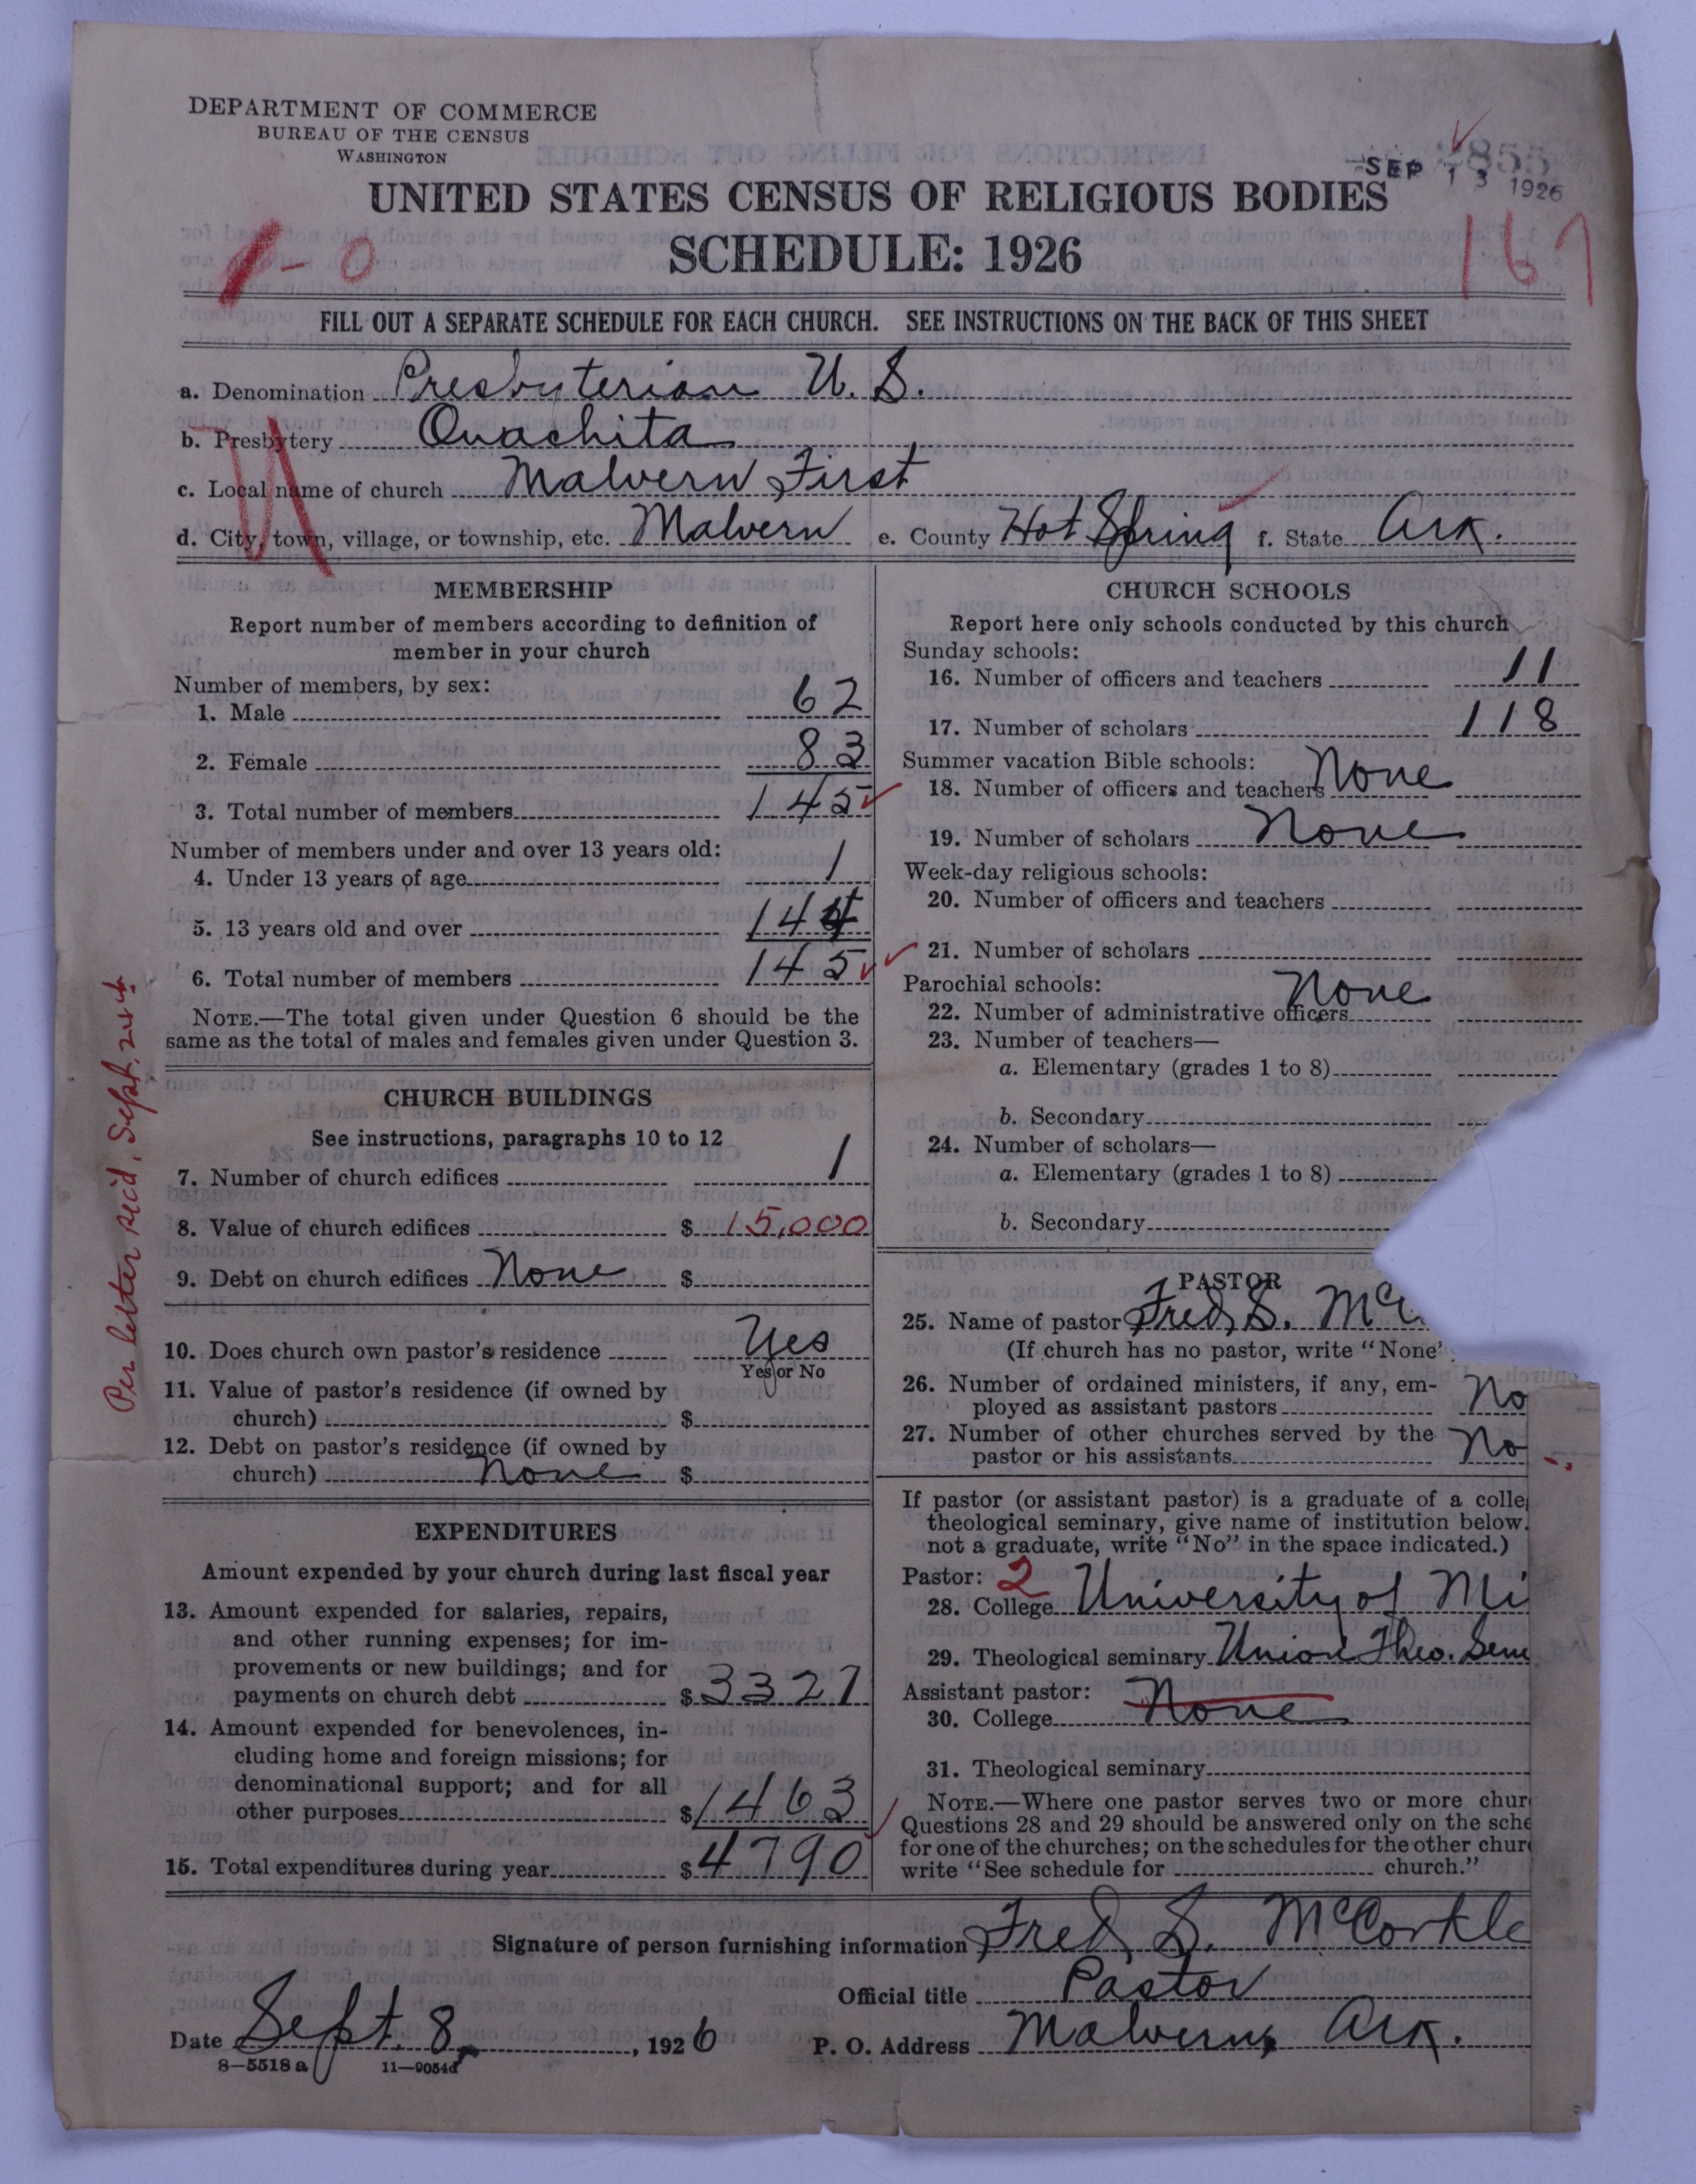 DEPARTMENT OF COMMERCE
BUREAU OF THE CENSUS
WASHINGTON
SEP 13 1926
UNITED STATES CENSUS OF RELIGIOUS BODIES
SCHEDULE: 1926
1-0
167
FILL OUT A SEPARATE SCHEDULE FOR EACH CHURCH. SEE INSTRUCTIONS ON THE BACK OF THIS SHEET
a. Denomination Presbyterian U. S.
b. Presbytery Ouachita
c. Local name of church Malvern First
d. City, town, village, or township, etc. Malvern e. County Hot Spring f. State Ark.
MEMBERSHIP
Report number of members according to definition of
member in your church
Number of members, by sex:
1. Male 62
2. Female 83
3. Total number of members 145
Number of members under and over 13 years old:
4. Under 13 years of age 1
5. 13 years old and over 144
6. Total number of members 145
NOTE.—The total given under Question 6 should be the
same as the total of males and females given under Question 3.
CHURCH BUILDINGS
See instructions, paragraphs 10 to 12
7. Number of church edifices 1
8. Value of church edifices $ 15,000
9. Debt on church edifices None $
10. Does church own pastor's residence Yes
Yes or No
11. Value of pastor's residence (if owned by
church) $
12. Debt on pastor's residence (if owned by
church) None $
Per letter rec'd. Sept. 24
EXPENDITURES
Amount expended by your church during last fiscal year
13. Amount expended for salaries, repairs,
and other running expenses; for im-
provements or new buildings; and for
payments on church debt $ 3327
14. Amount expended for benevolences, in-
cluding home and foreign missions; for
denominational support; and for all
other purposes $ 1463
15. Total expenditures during year $ 4790
CHURCH SCHOOLS
Report here only schools conducted by this church
Sunday schools:
16. Number of officers and teachers 11
17. Number of scholars 118
Summer vacation Bible schools:
18. Number of officers and teachers None
19. Number of scholars None
Week-day religious schools:
20. Number of officers and teachers
21. Number of scholars
Parochial schools:
22. Number of administrative officers None
23. Number of teachers—
a. Elementary (grades 1 to 8)
b. Secondary
24. Number of scholars—
a. Elementary (grades 1 to 8)
b. Secondary
PASTOR
25. Name of pastor Fred S. McC
(If church has no pastor, write "None"
26. Number of ordained ministers, if any, em-
ployed as assistant pastors No
27. Number of other churches served by the
pastor or his assistants No
If pastor (or assistant pastor) is a graduate of a colle
theological seminary, give name of institution below.
not a graduate, write "No" in the space indicated.)
Pastor: 2
28. College University of Mi
29. Theological seminary Union Theo. Sem
Assistant pastor:
30. College None
31. Theological seminary
NOTE.—Where one pastor serves two or more chur
Questions 28 and 29 should be answered only on the sche
for one of the churches; on the schedules for the other chur
write "See schedule for church."
Signature of person furnishing information Fred S. McCorkle
Official title Pastor
Date Sept. 8, 1926 P. O. Address Malvern, Ark.
8—5518 a 11—9054d